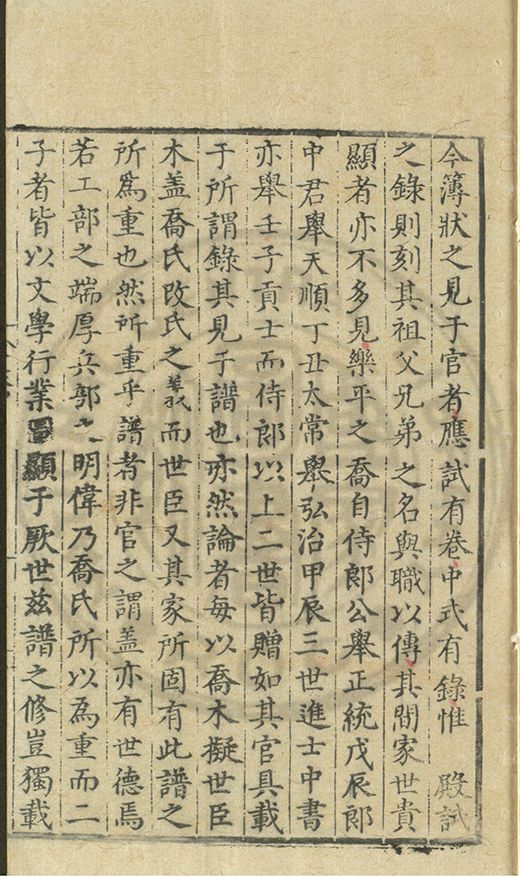 今簿狀之見于官者應試有卷中式有錄惟　殿試
之錄則刻其祖父兄弟之名與職以傳其間家世貴
顯者亦不多見樂平之喬自侍郎公舉正統戊辰郎
中君舉天順丁丑太常舉弘治甲辰三世進士中書
亦舉壬子貢士而侍郎以上二世皆贈如其官具載
于所謂錄其見于譜也亦然論者每以喬木擬世臣
木盖喬氏改氏之而世臣又其家所固有此譜之
所爲重也然所重乎譜者非官之謂盖亦有世德焉
若工部之端厚兵部之明偉乃喬氏所以爲重而二
子者皆以文學行業顯于厥世兹譜之修豈獨載